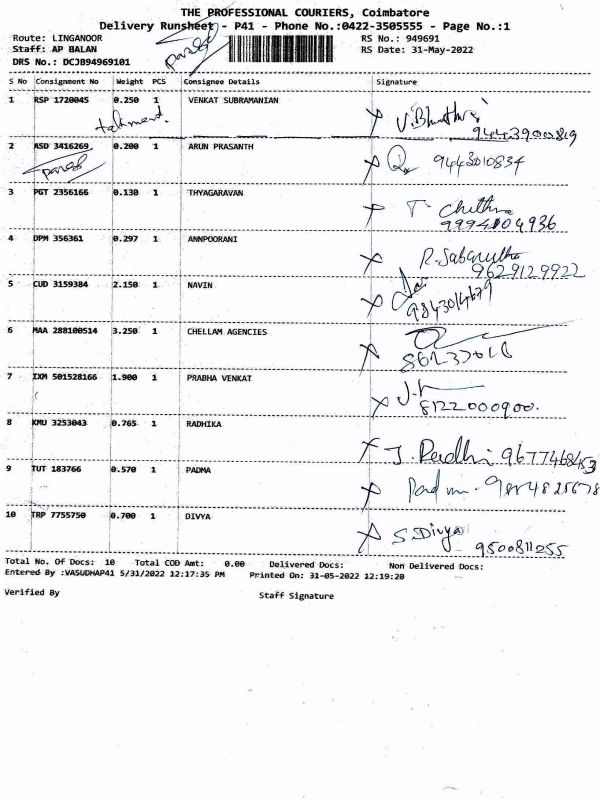 THE PROFESSIONAL COURIERS, Coimbatore
Delivery Runsheet - P41 - Phone No.:0422-3505555 - Page No.:1
Route: LINGANOOR RS No.: 949691
Staff: AP BALAN RS Date: 31-May-2022
DRS No.: DCJB94969101
S No Consignment No Weight PCS Consignee Details Signature
1 RSP 1720045 0.250 1 VENKAT SUBRAMANIAN
2 ASD 3416269 0.200 1 ARUN PRASANTH
9443010834
3 PGT 2356166 0.130 1 THYAGARAVAN
T. Chithra
9994104936
4 DPM 356361 0.297 1 ANNPOORANI
9629129922
5 CUD 3159384 2.150 1 NAVIN
6 MAA 288100514 3.250 1 CHELLAM AGENCIES
7 IXM 501528166 1.900 1 PRABHA VENKAT
8122000900.
8 KMU 3253043 0.765 1 RADHIKA
9677468453
9 TUT 183766 0.570 1 PADMA
10 TRP 7755750 0.700 1 DIVYA
S Divya
9500811255
Total No. Of Docs: 10 Total COD Amt: 0.00 Delivered Docs: Non Delivered Docs:
Entered By :VASUDHAP41 5/31/2022 12:17:35 PM Printed On: 31-05-2022 12:19:20
Verified By Staff Signature